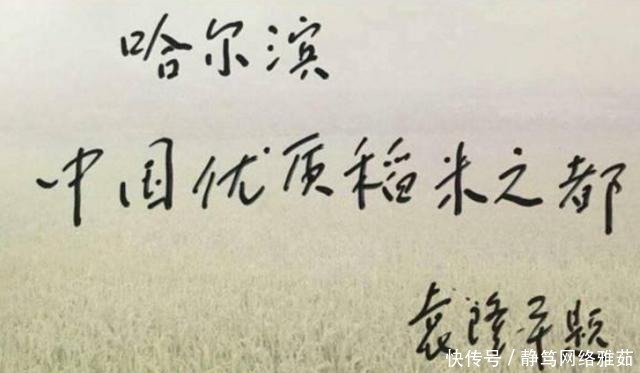 哈尔滨
中国优质稻米之都
袁隆平题
快传号／静笃网络雅茹